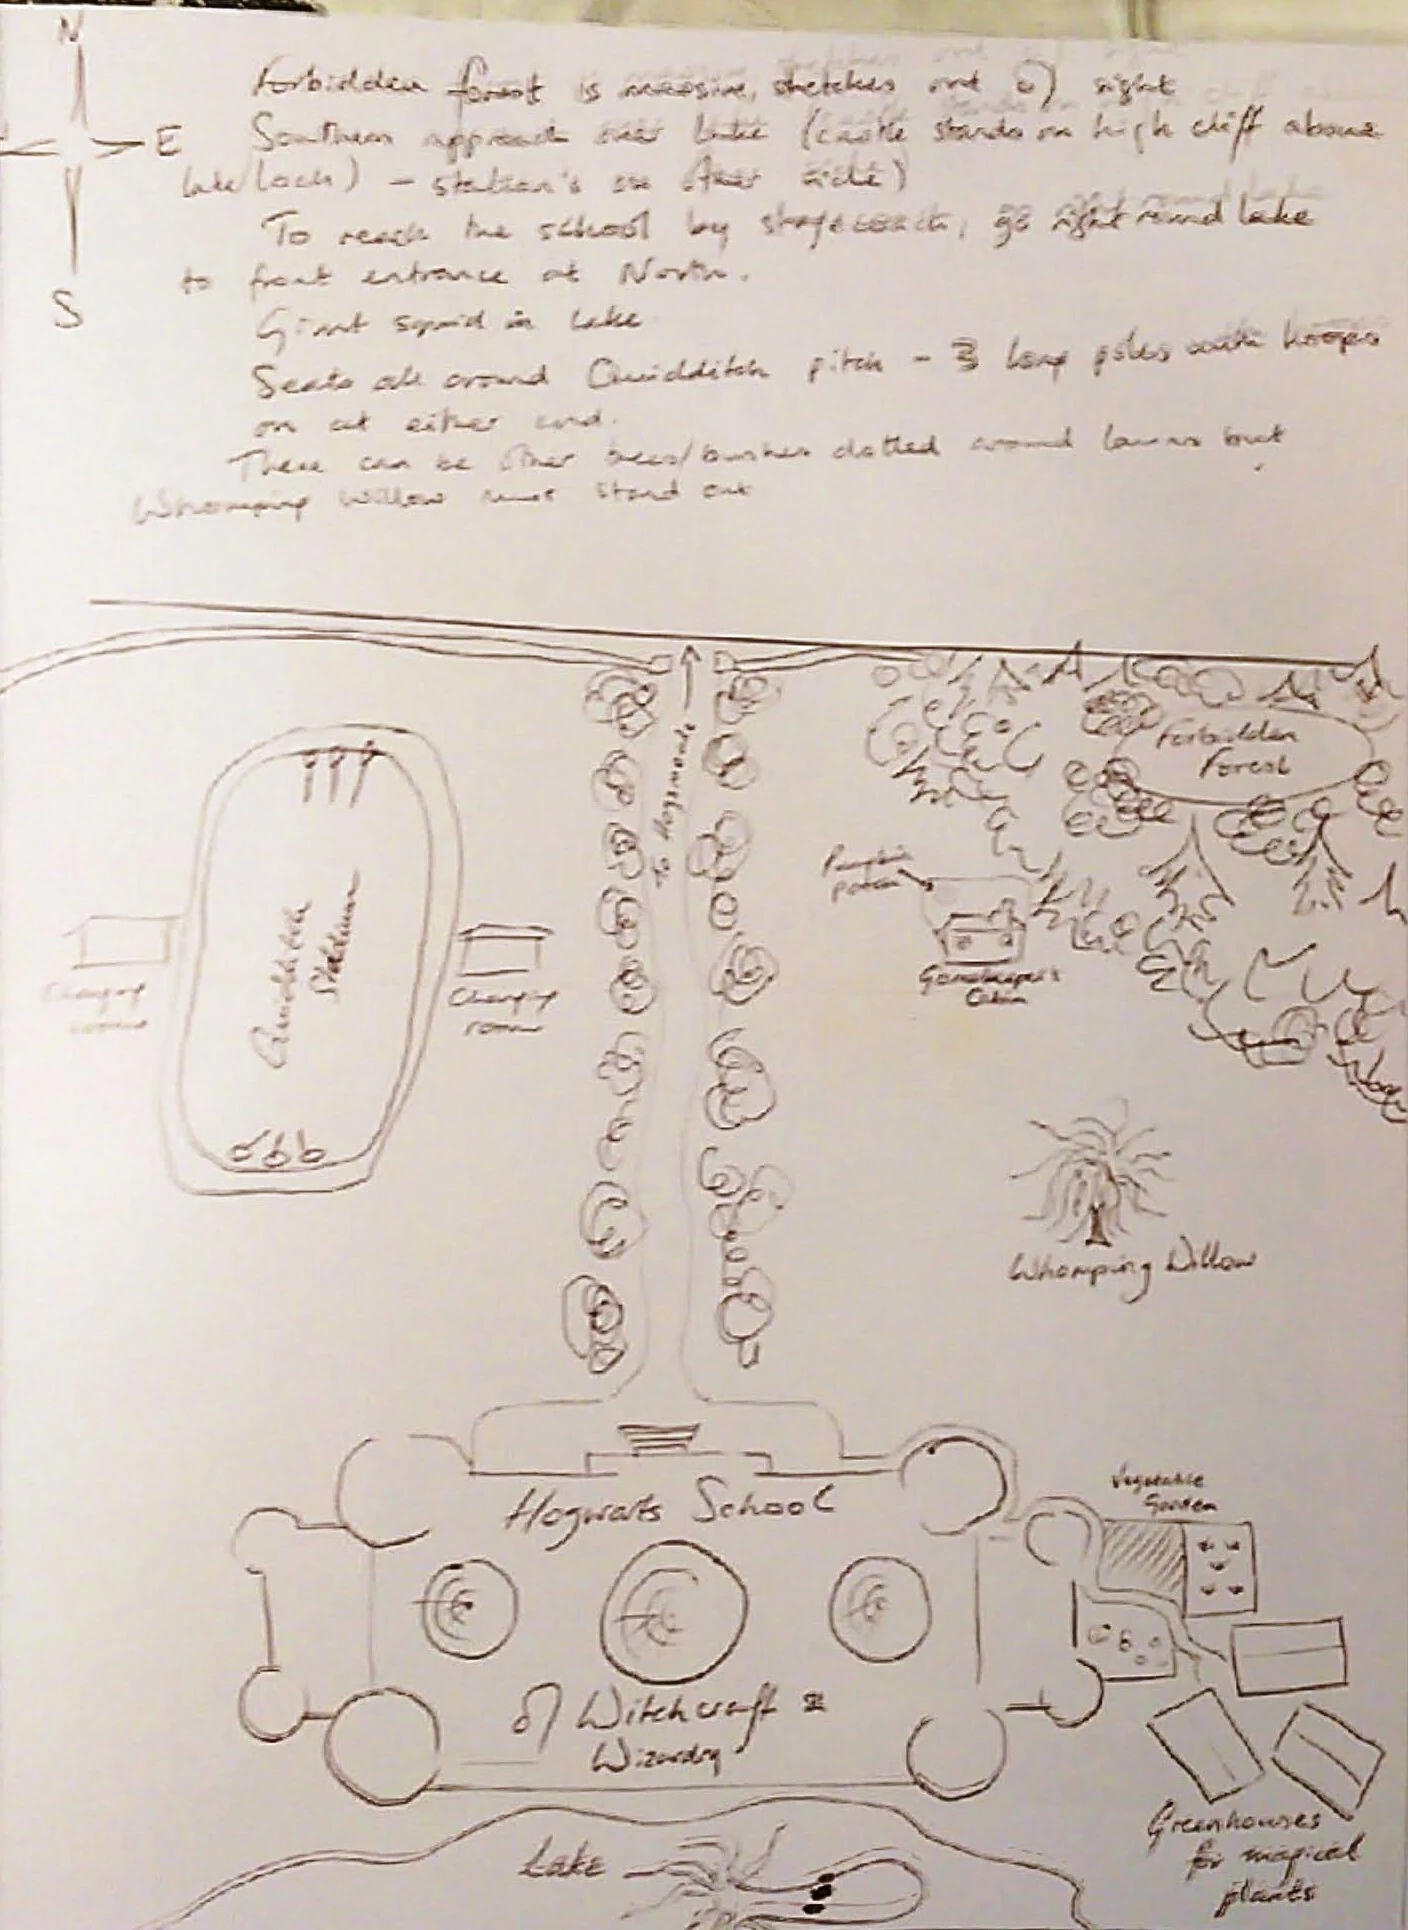 N
E
S
Forbidden forest is massive, stretches out of sight
Southern approach over lake (castle stands on high cliff above
lake/loch) – station's on other side)
To reach the school by stagecoach, go right round lake
to front entrance at North.
Giant squid in lake.
Seats all around Quidditch pitch – 3 long poles with hoops
on at either end.
There can be other trees/bushes dotted around lawns but
Whomping Willow must stand out
To Hogsmeade
Forbidden
Forest
Pumpkin
patch
Gamekeeper's
Cabin
Quidditch
Stadium
Changing
rooms
Changing
rooms
Whomping Willow
Hogwarts School
of Witchcraft &
Wizardry
Vegetable
Garden
Greenhouses
for magical
plants
Lake